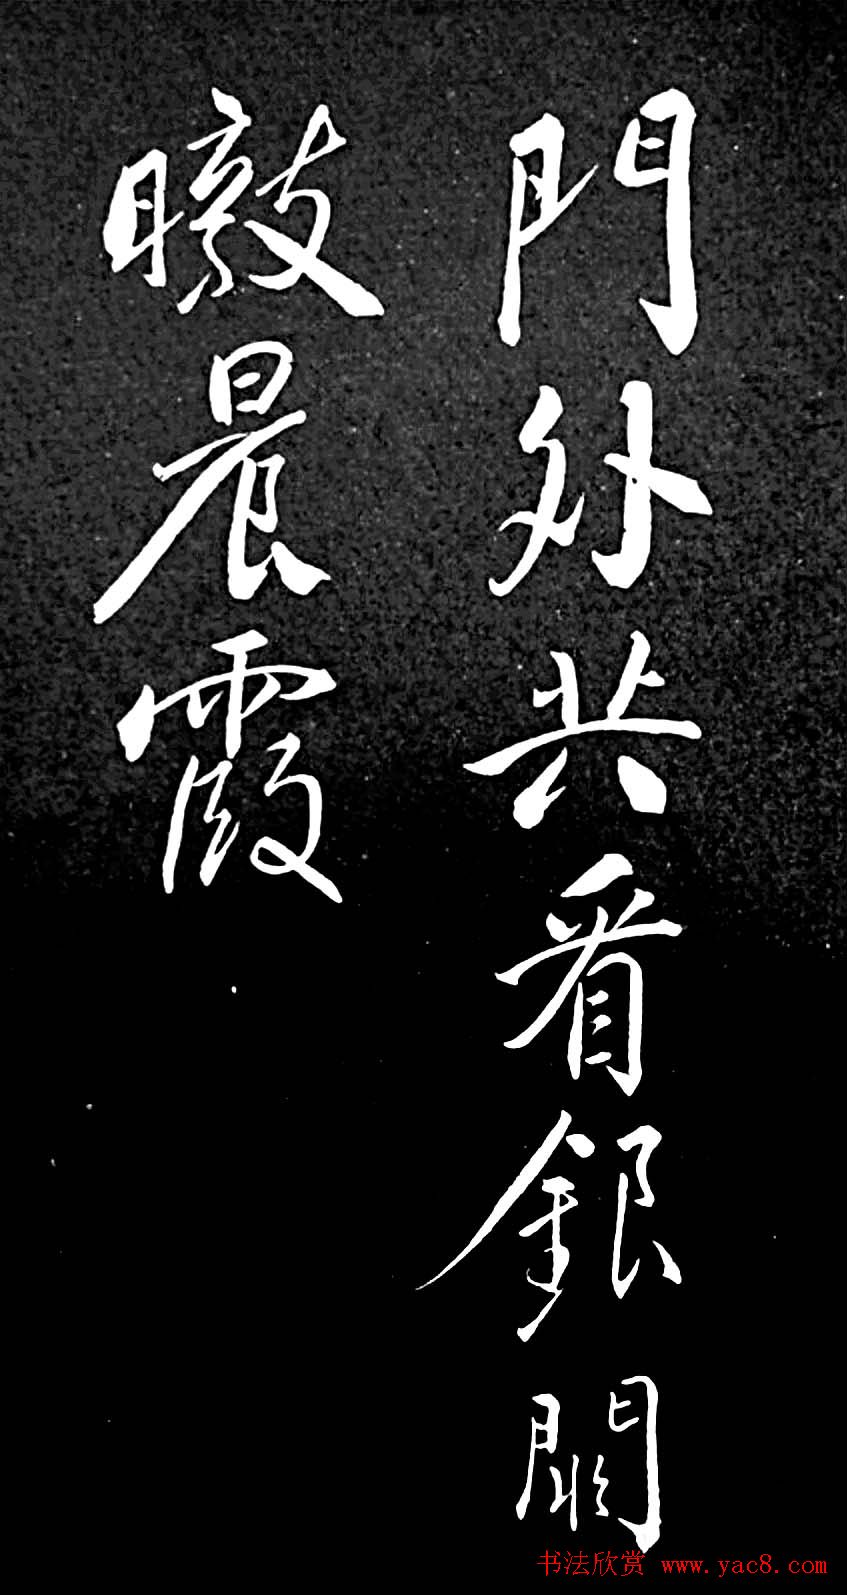 門外共看銀闕
曒晨霞
书法欣赏 www.yac8.com